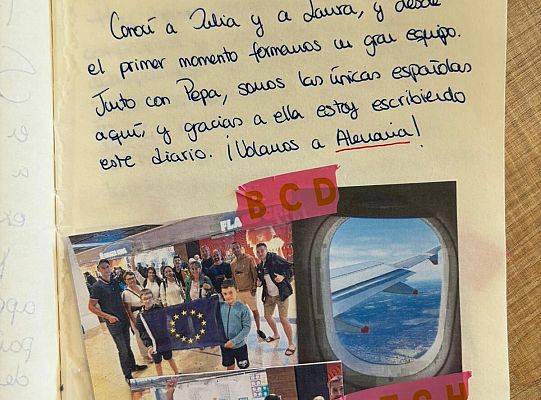 Conocí a Julia y a Laura, y desde
el primer momento formamos un gran equipo.
Junto con Pepa, somos las únicas españolas
aquí, y gracias a ella estoy escribiendo
este diario. ¡Volamos a Alemania!
BCD
FLA